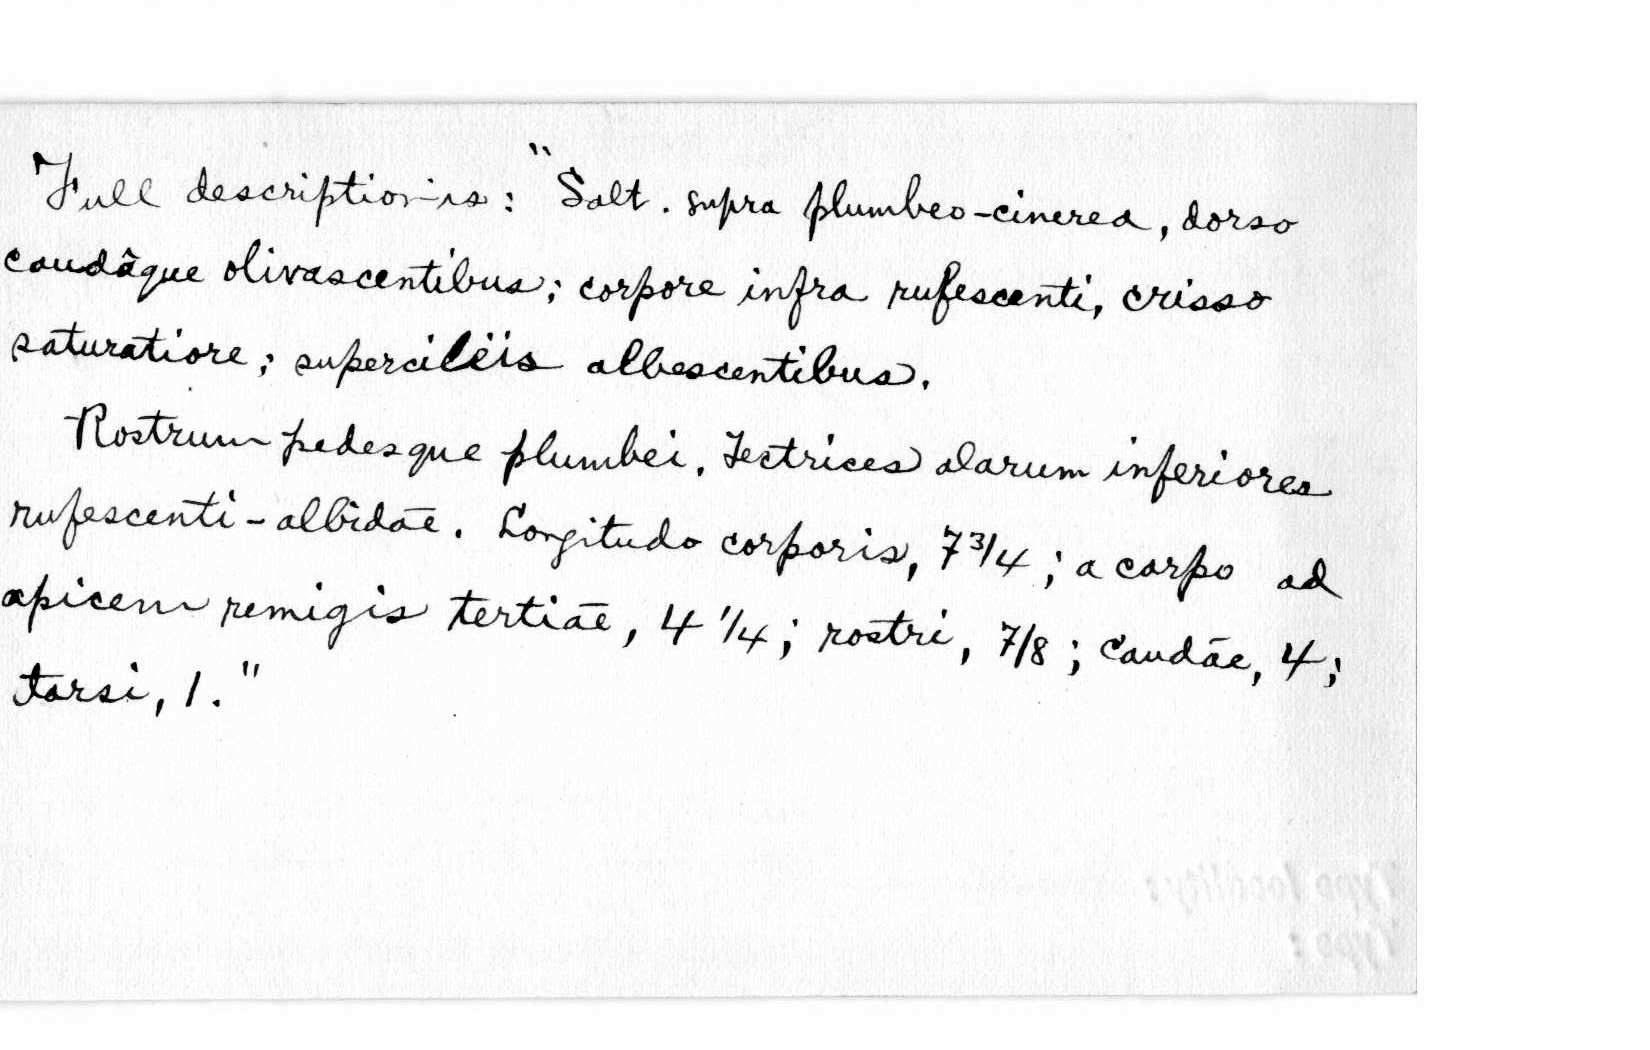 Full description is: "Salt. supra plumbeo-cinerea, dorso
caudâque olivascentibus; corpore infra rufescenti, crisso
saturatiore; superciliis albescentibus.
Rostrum pedesque plumbei. Tectrices alarum inferiores
rufescenti-albidae. Longitudo corporis, 7 3/4; a carpo ad
apicem remigis tertiae, 4 1/4; rostri, 7/8; caudae, 4;
tarsi, 1."
Type locality:
Type: